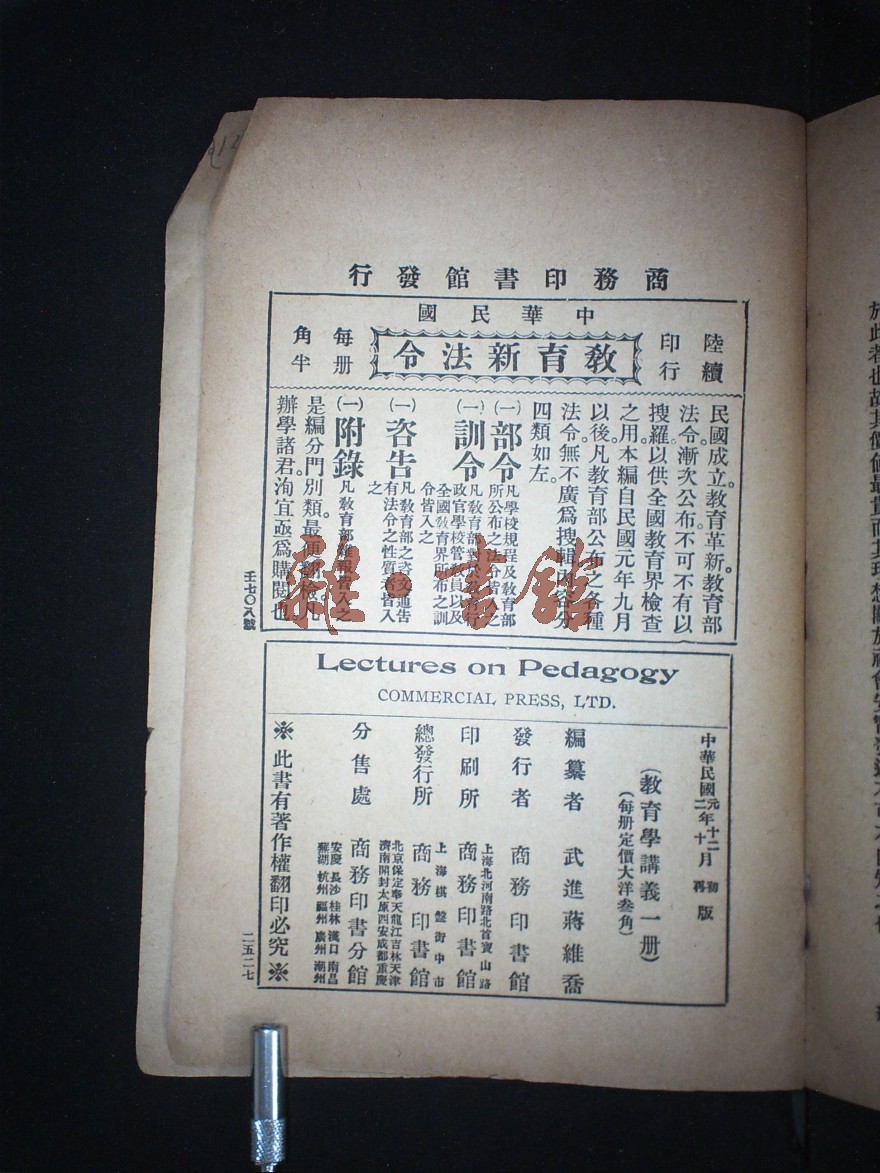 商務印書館發行
中華民國
陸續
印行
教育新法令
每冊
角半
民國成立。教育革新。教育部
法令。漸次公布。不可不有以
搜羅。以供全國教育界檢查
之用。本編自民國元年九月
以後。凡教育部公布之各種
法令。無不廣爲搜輯。內容分
四類如左。
(一)部令 凡學校規程及教育部
所公布之法令皆入之
(一)訓令 凡教育部對於各教育行
政官學校管教員以及
全國教育界所布之訓
令皆入之
(一)咨告 凡教育部之咨文通告
有法令之性質者皆入
之
(一)附錄 凡教育部雜報皆入之
是編分門別類。最便翻檢。凡
辦學諸君。洵宜亟爲購閱也
壬七〇八號
Lectures on Pedagogy
COMMERCIAL PRESS, LTD.
中華民國元年十二月初版
二年十月再版
(教育學講義一册)
(每册定價大洋叁角)
編纂者 武進蔣維喬
發行者 商務印書館
上海北河南路北首寶山路
印刷所 商務印書館
上海棋盤街中市
總發行所 商務印書館
北京保定奉天龍江吉林天津
濟南開封太原西安成都重慶
分售處 商務印書分館
安慶長沙桂林漢口南昌
蕪湖杭州福州廣州潮州
※此書有著作權翻印必究※
二五二七
雜·書館